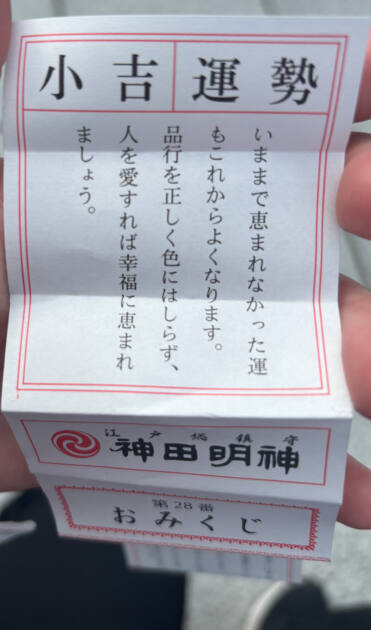 運勢
小吉
いままで恵まれなかった運
もこれからよくなります。
品行を正しく色にはしらず、
人を愛すれば幸福に恵まれ
ましょう。
江戸総鎮守
神田明神
第28番
おみくじ